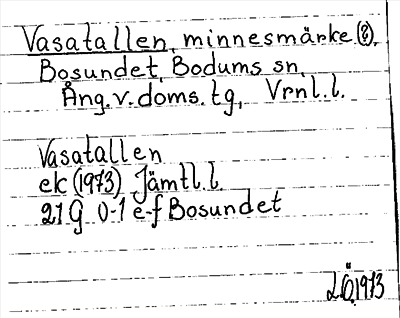 Vasatallen, minnesmärke(?),
Bosundet, Bodums sn,
Ång.v.doms.tg, Vrnl.l.
Vasatallen
ek (1973) Jämtl.l.
21G 0-1 e-f Bosundet
L.Ö.1973